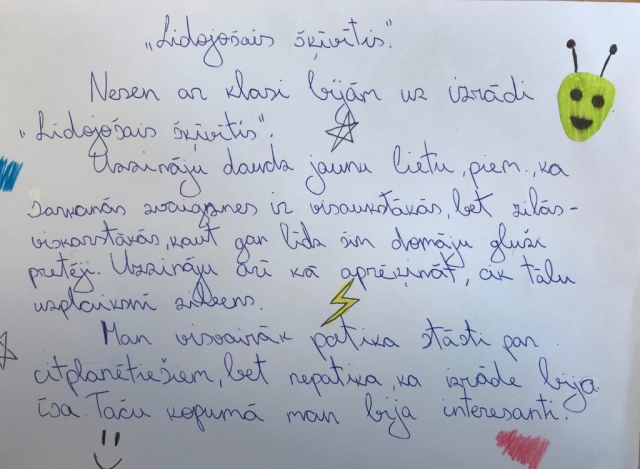 „Lidojošais šķīvītis".
Nesen ar klasi bijām uz izrādi
„Lidojošais šķīvītis".
Uzzināju daudz jaunu lietu, piem., ka
sarkanās zvaigznes ir visaukstākās, bet zilās -
viskarstākās, kaut gan līdz šim domāju gluži
pretēji. Uzzināju arī kā aprēķināt, cik tālu
uzplaiksnī zibens.
Man visvairāk patika stāsti par
citplanētiešiem, bet nepatika, ka izrāde bija
īsa. Taču kopumā man bija interesanti.